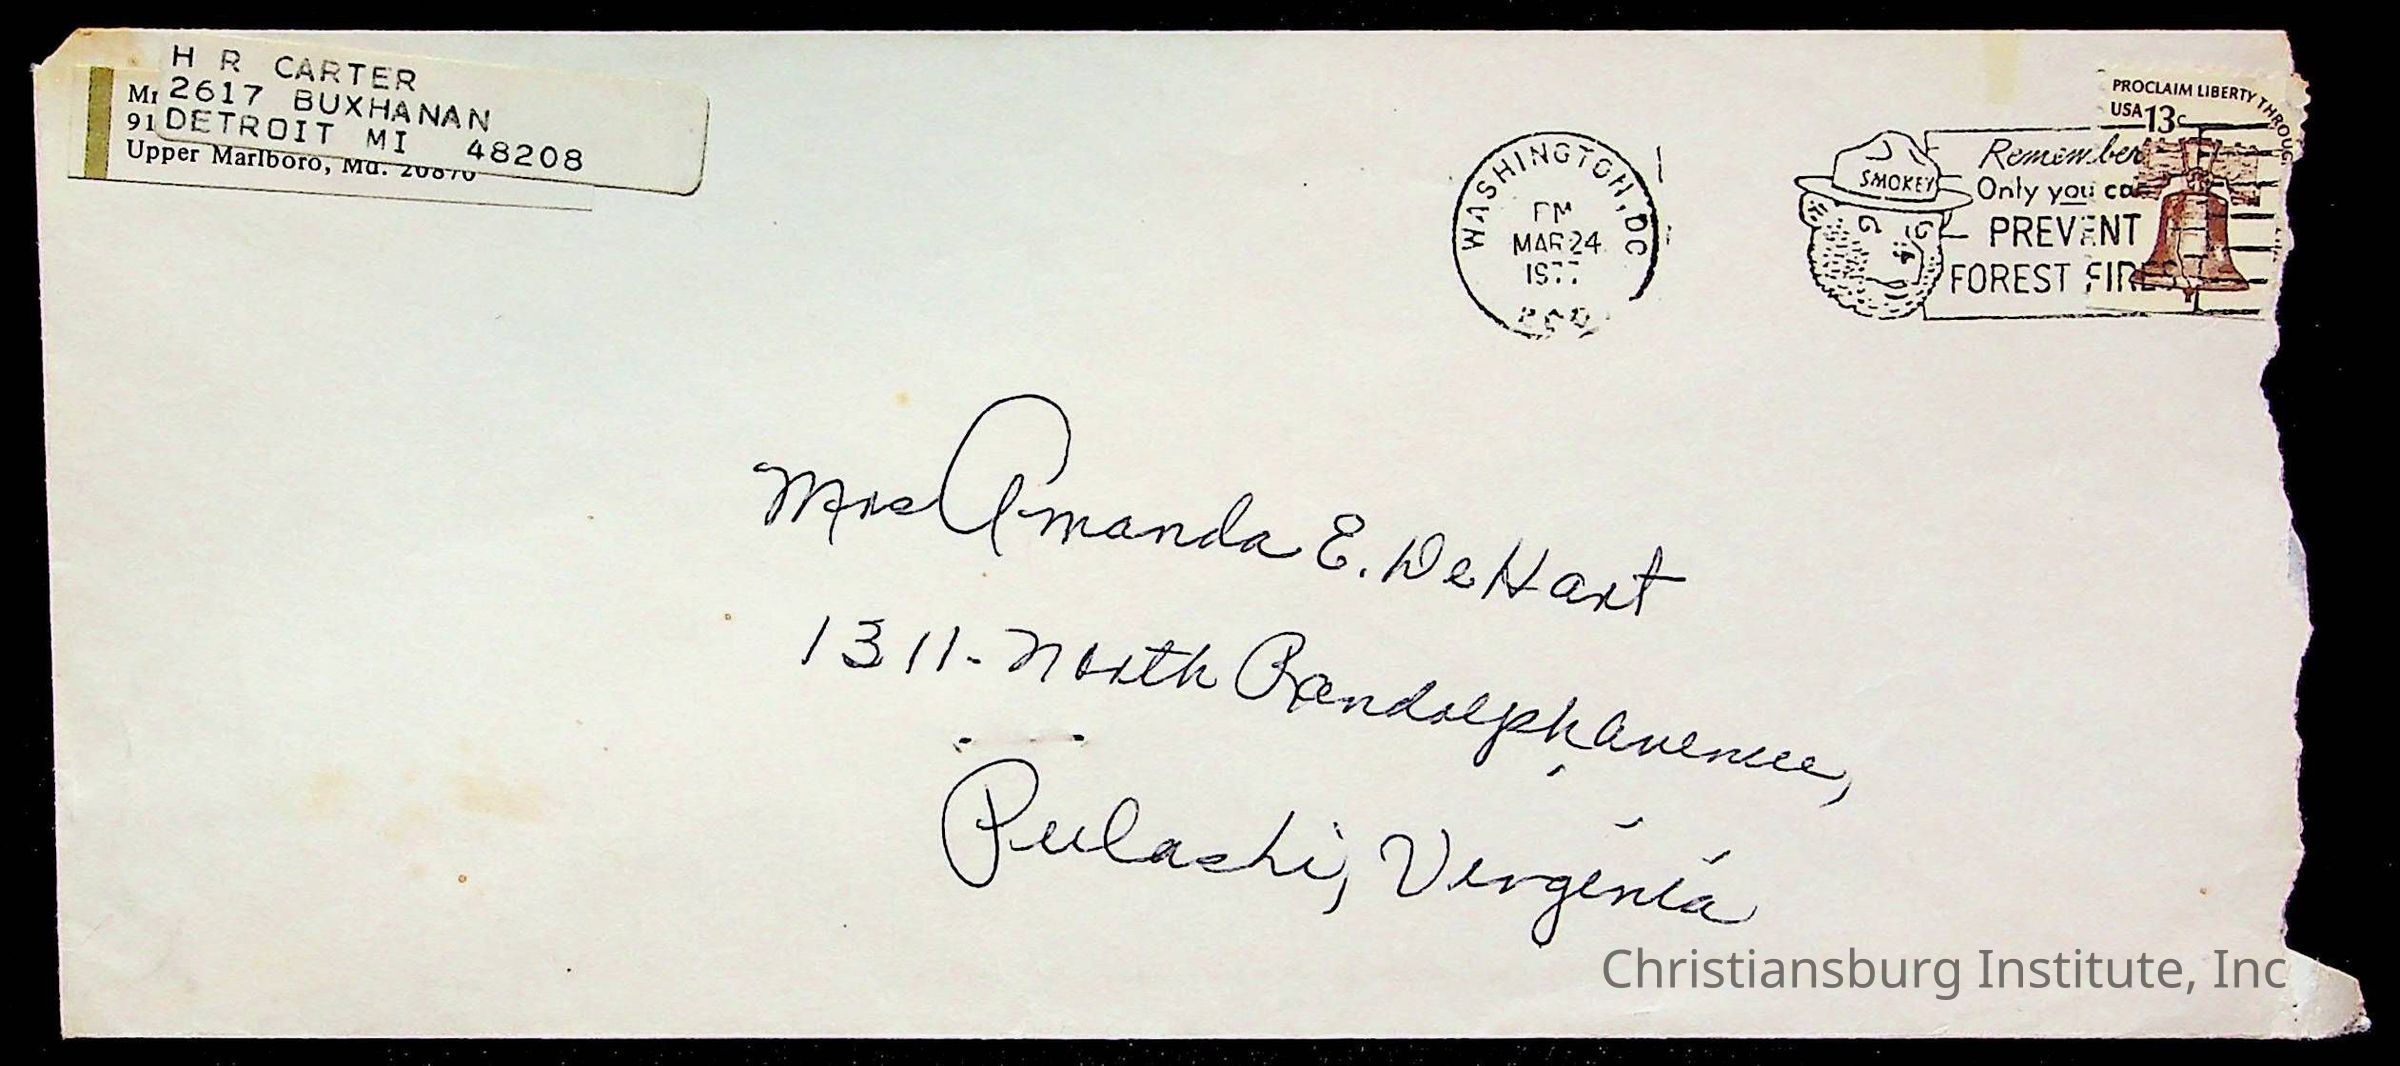 H R CARTER
2617 BUXHANAN
DETROIT MI 48208
91
Upper Marlboro, Md. 20870
WASHINGTON, DC
PM
MAR 24
1977
SMOKEY
Remember
Only you ca
PREVENT
FOREST FIRES
PROCLAIM LIBERTY THROUG
USA 13c
Mrs Amanda E. DeHart
1311- North Randolph avenue,
Pulaski, Virginia
Christiansburg Institute, Inc